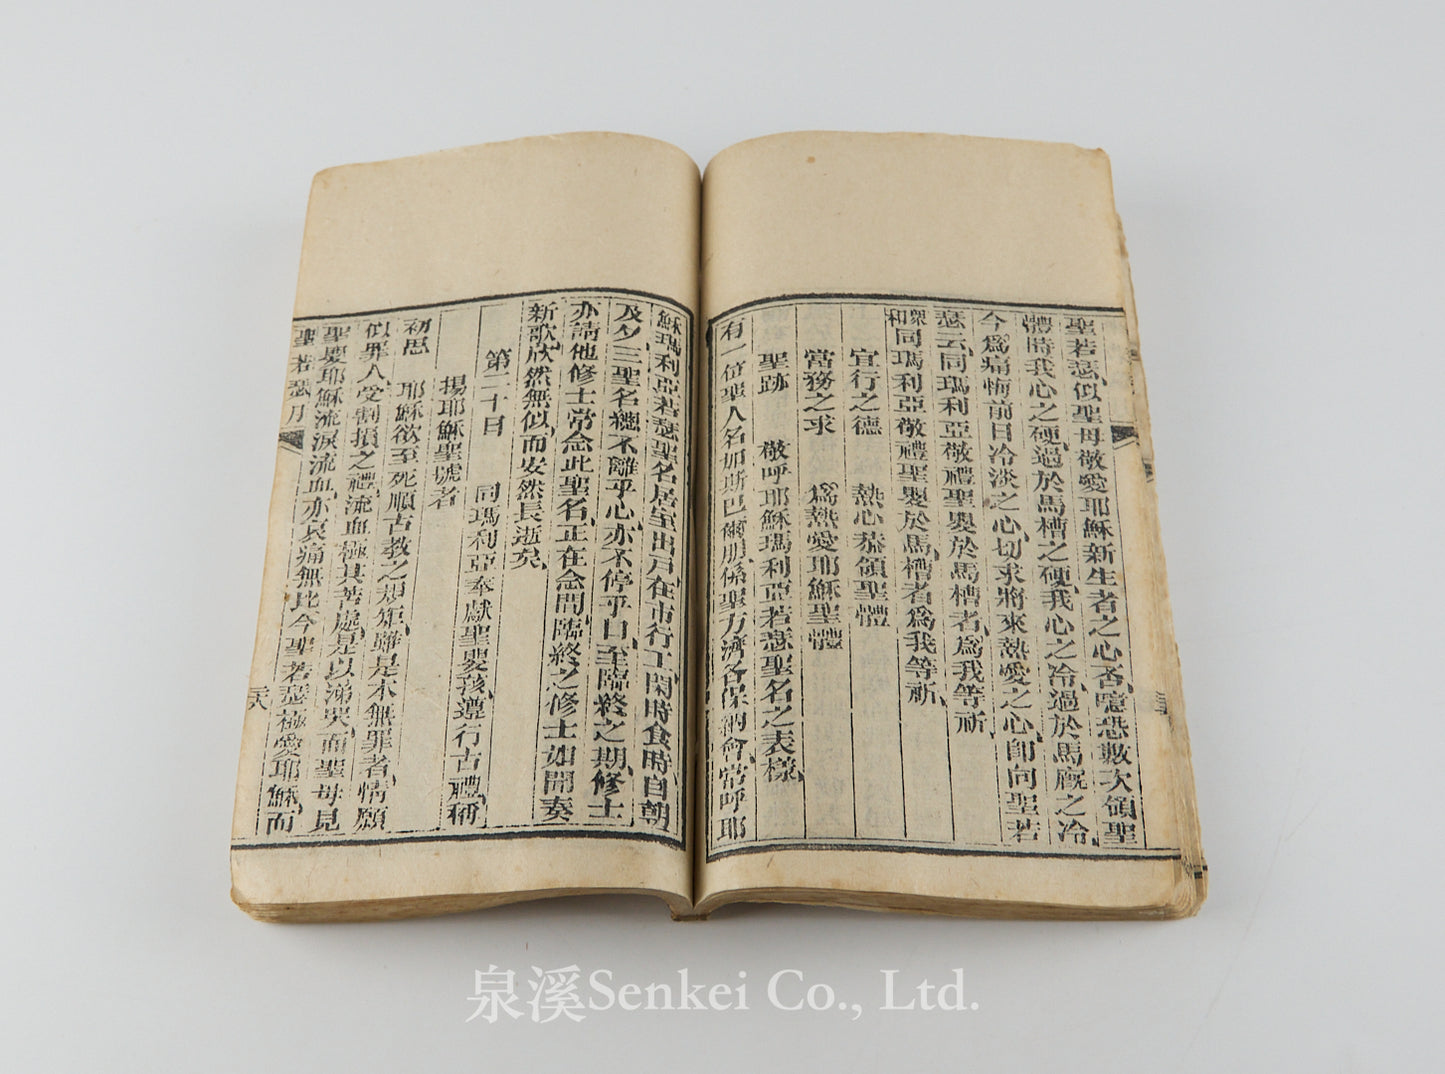 聖若瑟似聖母敬愛耶穌新生者之心否噫恐數次領聖
體時我心之硬過於馬槽之硬我心之冷過於馬廐之冷
今為痛悔前日冷淡之心切求將來熱愛之心即向聖若
瑟云同瑪利亞敬禮聖嬰於馬槽者為我等祈
衆和同瑪利亞敬禮聖嬰於馬槽者為我等祈
宜行之德 熱心恭領聖體
當務之求 為熱愛耶穌聖體
聖跡 敬呼耶穌瑪利亞若瑟聖名之表樣
有一位聖人名如斯巴爾朋係聖方濟各保納會常呼耶
穌瑪利亞若瑟聖名居室出戸在市行工閑時食時自朝
及夕三聖名總不離乎心亦不停乎口至臨終之期修士
亦請他修士常念此聖名正在念間臨終之修士如聞奏
新歌欣然無似而安然長逝矣
第二十日 同瑪利亞奉獻聖嬰孩遵行古禮稱
揚耶穌聖號者
初思 耶穌欲至死順古教之規矩雖是本無罪者情願
似罪人受割損之禮流血極其苦處是以涕哭而聖母見
聖嬰耶穌流淚流血亦哀痛無比今聖若瑟極愛耶穌而
聖若瑟月
泉溪Senkei Co., Ltd.